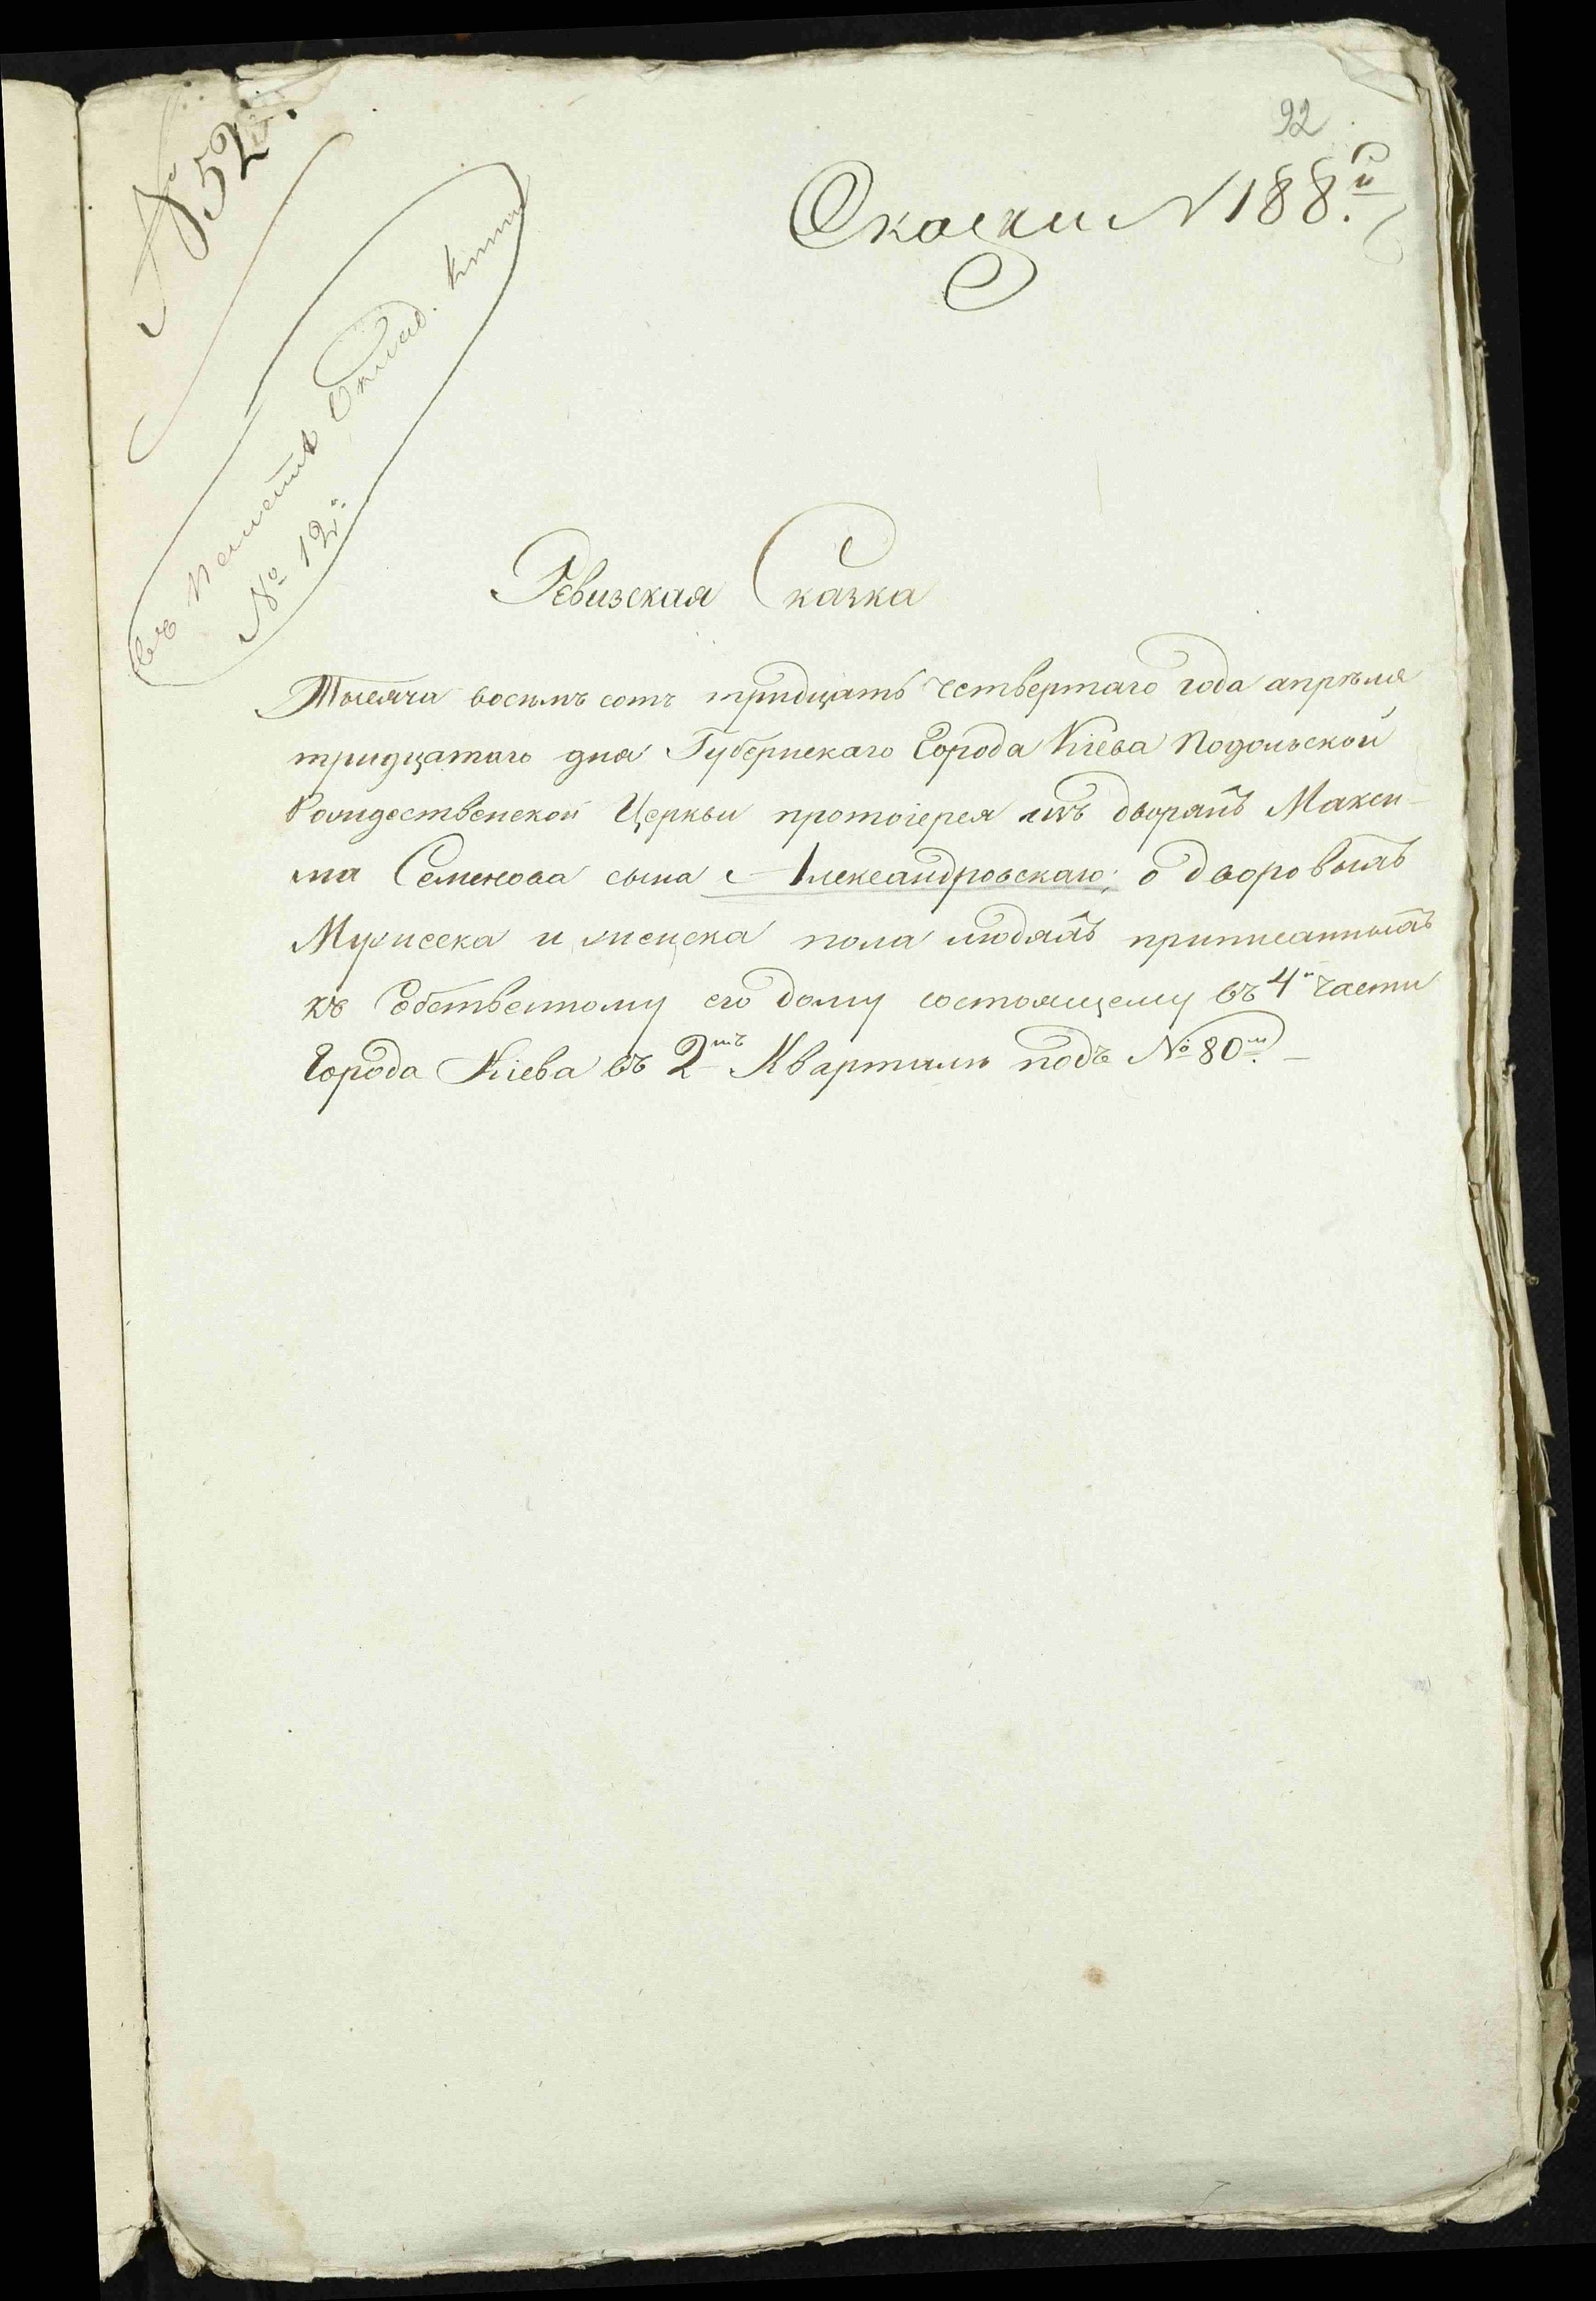 92
Скаски N 188й
№ 52й.
въ Помѣщ. Оклад. книги
№ 12й
Ревизская Сказка
Тысяча восемъ сотъ тридцать четвертаго года апрѣля
тридцатаго дня Губернскаго Города Кіева Подольской
Рождественской Церкви протоіерея изъ дворянъ Макси-
ма Семенова сына Александровскаго, о дворовымъ
Мужеска и женска пола людямъ приписаннымъ
къ Собственному его дому состоящему въ 4й части
Города Кіева въ 2мъ Кварталѣ подъ № 80м. –